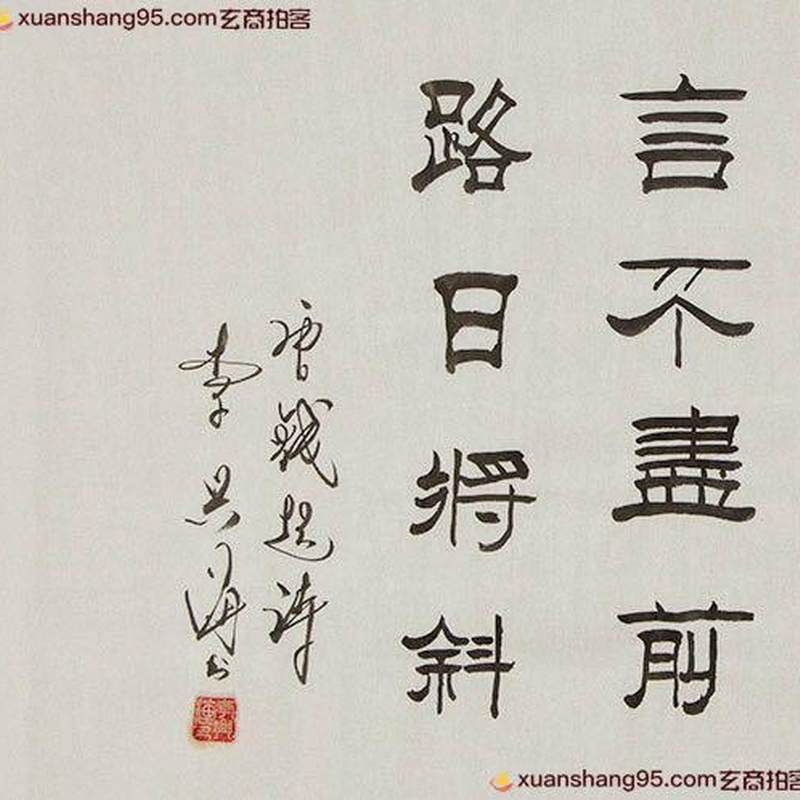 xuanshang95.com玄商拍客
言不盡前
路日將斜
唐錢起詩
李海书
xuanshang95.com玄商拍客